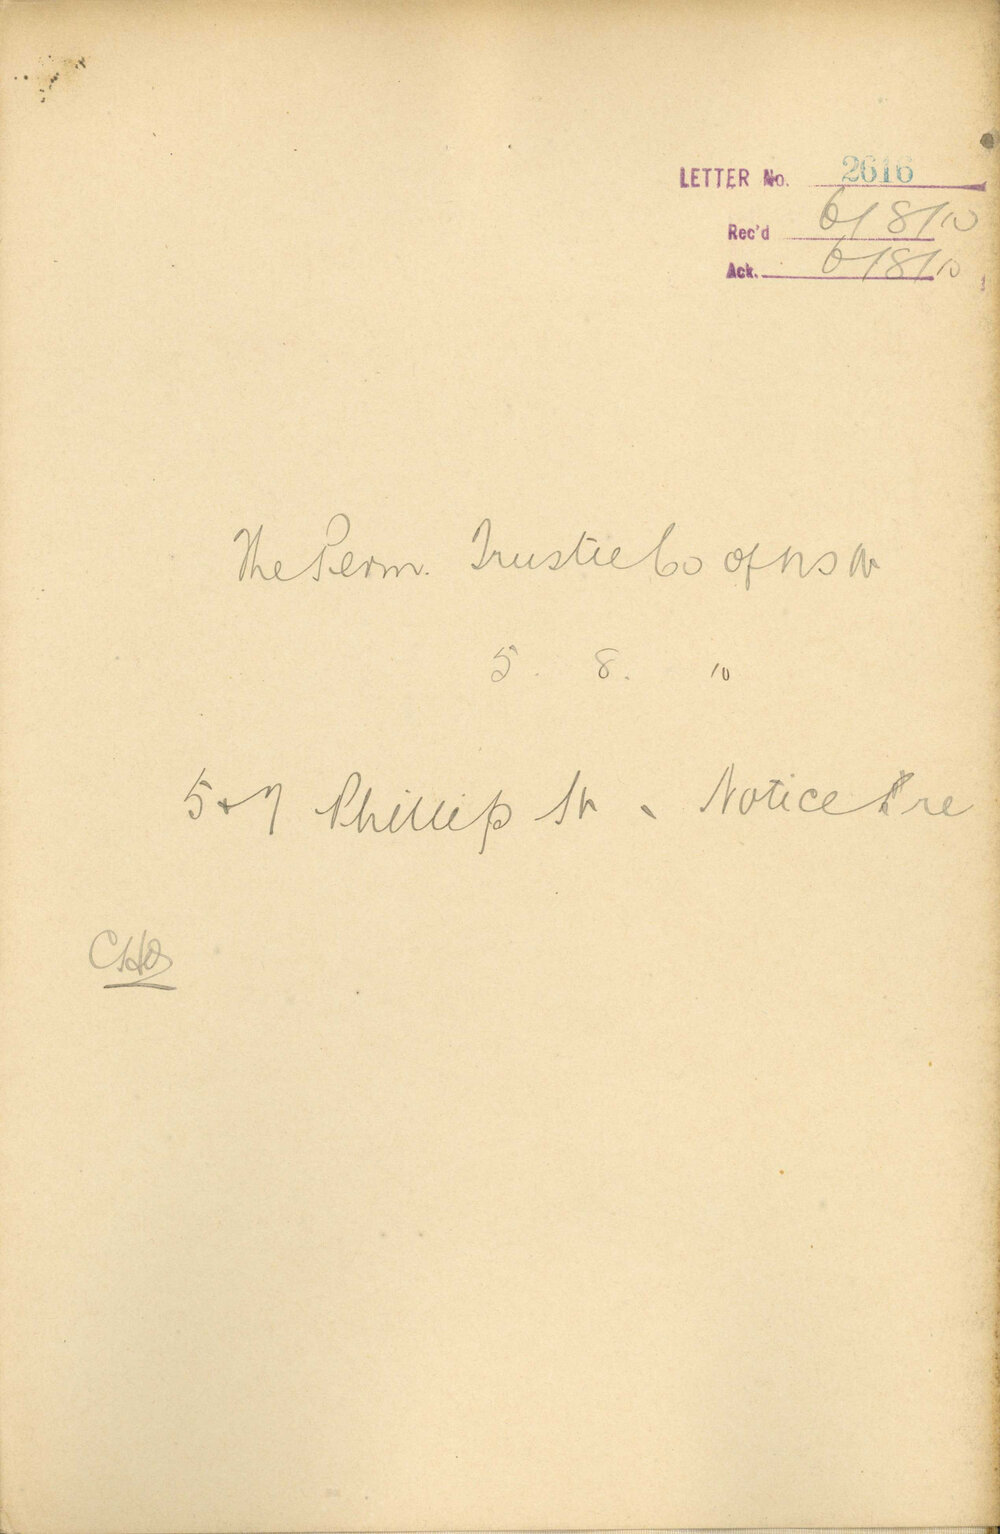 LETTER No. 2616
Rec'd 6/8/10
Ack. 6/8/10
The Perm. Trustee Co of NSW
5. 8. 10
5 & 7 Phillip St. Notice re